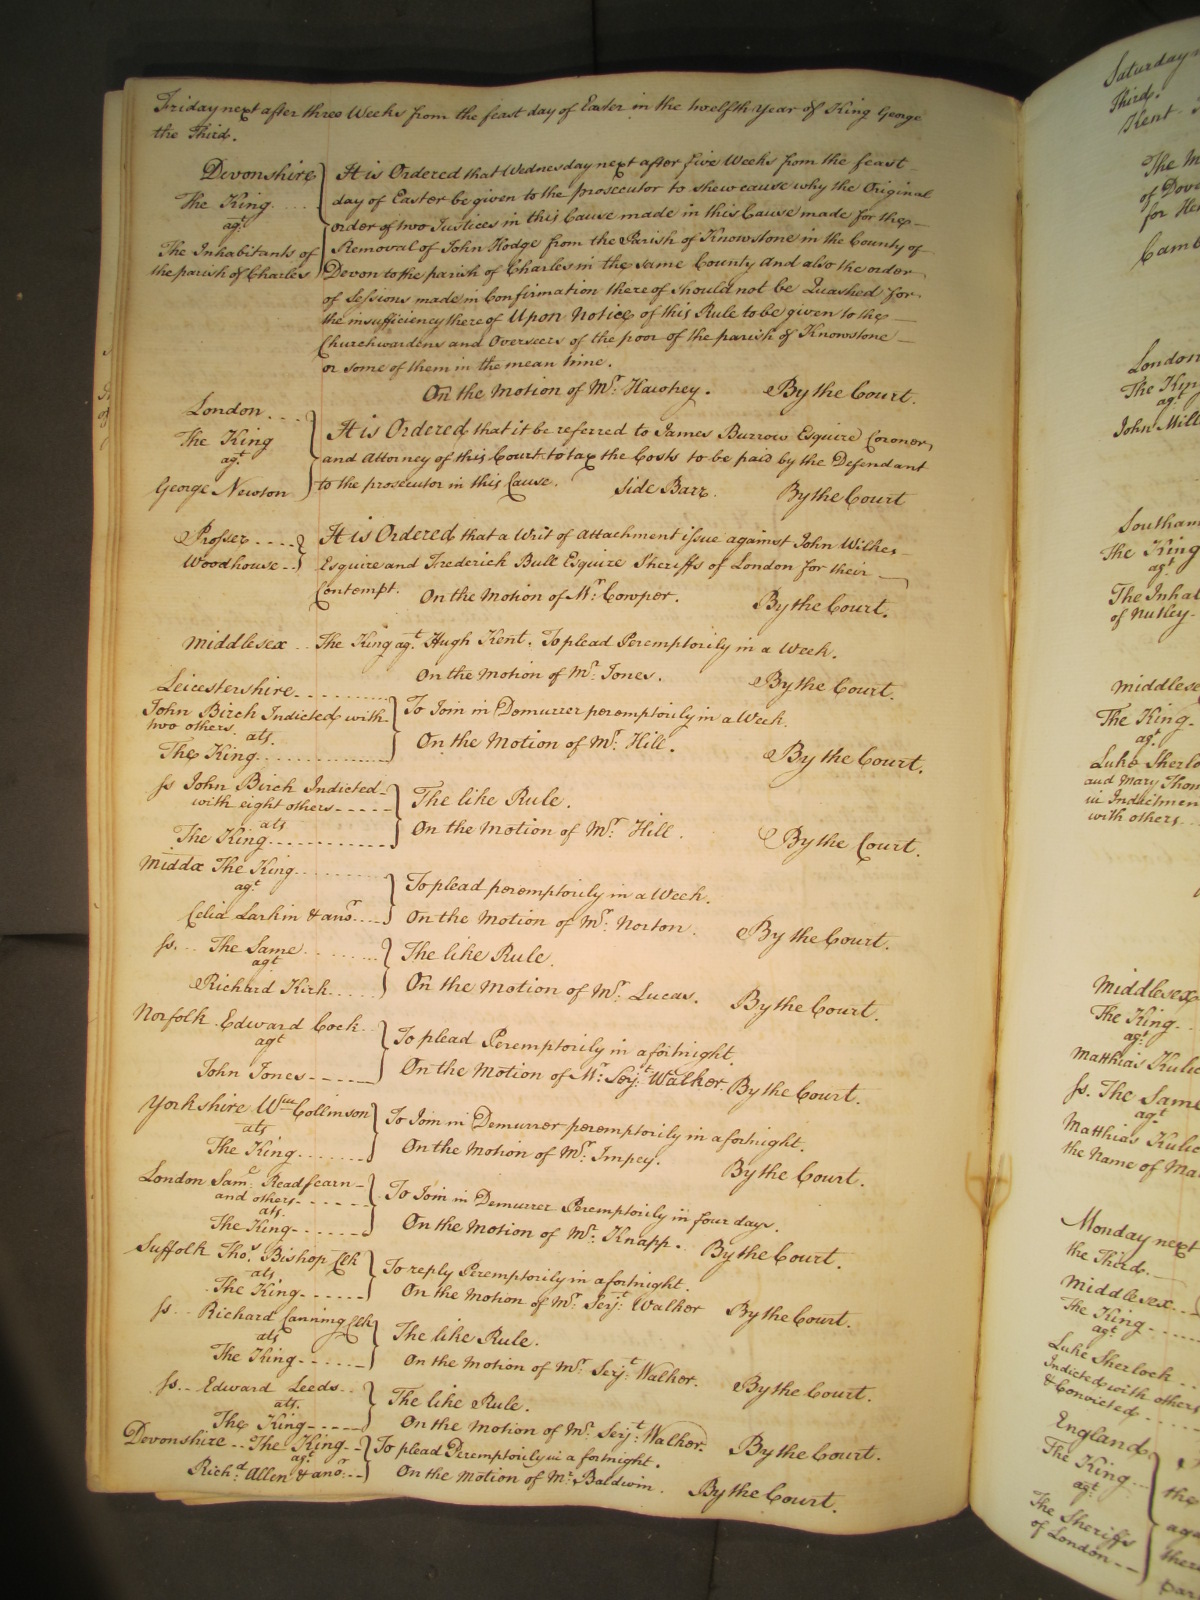 Friday next after three Weeks from the feast day of Easter in the twelfth Year of King George
the Third.
Devonshire
The King
agt
The Inhabitants of
the parish of Charles
It is Ordered that Wednesday next after five Weeks from the feast
day of Easter be given to the prosecutor to shew cause why the Original
order of two Justices in this Cause made in this Cause made for the
Removal of John Hodge from the Parish of Knowstone in the County of
Devon to the parish of Charles in the same County and also the order
of Sessions made in Confirmation thereof should not be Quashed for
the insufficiency thereof Upon Notice of this Rule to be given to the
Churchwardens and Overseers of the poor of the parish of Knowstone
or some of them in the mean time.
On the Motion of Mr. Hawkey. By the Court.
London
The King
agt
George Newton
It is Ordered that it be referred to James Burrow Esquire Coroner,
and Attorney of this Court to tax the Costs to be paid by the Defendant
to the prosecutor in this Cause. Side Barr. By the Court
Prosser
Woodhouse
It is Ordered that a Writ of attachment issue against John Wilkes
Esquire and Frederick Bull Esquire Sheriffs of London for their
Contempt. On the Motion of Mr. Cowper. By the Court.
Middlesex The King agt. Hugh Kent. To plead Peremptorily in a Week.
On the Motion of Mr. Jones. By the Court.
Leicestershire
John Birch Indicted with
two others
ats.
The King
To Join in Demurrer peremptorily in a Week.
On the Motion of Mr. Hill. By the Court.
ss John Birch Indicted
with eight others
ats
The King
The like Rule.
On the Motion of Mr. Hill. By the Court.
Middx The King
agt
Celia Larkin & anor.
To plead peremptorily in a Week.
On the Motion of Mr. Norton. By the Court.
ss. The Same
agt
Richard Kirk
The like Rule.
On the Motion of Mr. Lucas. By the Court.
Norfolk Edward Cock
agt
John Jones
To plead Peremptorily in a fortnight.
On the Motion of Mr. Serjt. Walker. By the Court.
Yorkshire Wm Collinson
ats
The King
To Join in Demurrer peremptorily in a fortnight.
On the Motion of Mr. Impey. By the Court.
London Saml. Readfearn
and others
ats.
The King
To Join in Demurrer Peremptorily in four days.
On the Motion of Mr. Knapp. By the Court.
Suffolk Thos. Bishop Clk
ats
The King
To reply Peremptorily in a fortnight.
On the Motion of Mr. Serjt. Walker By the Court.
ss. Richard Canning Clk
ats
The King
The like Rule.
On the Motion of Mr. Serjt. Walker. By the Court.
ss. Edward Leeds
ats.
The King
The like Rule.
On the Motion of Mr. Serjt. Walker. By the Court.
Devonshire The King
agt
Richd. Allen & anor.
To plead Peremptorily in a fortnight.
On the Motion of Mr. Baldwin. By the Court.
Saturday
Third.
Kent
The
of
for
London
The
agt
John
The King
agt
of Nutley
The King
agt
and Mary
with others
Middlesex
The King
agt
Matthias
ss. The Same
agt
Matthias
the Name of
Monday next
the Third.
Middlesex
The King
agt
Luke Sherlock
Indicted with others
& Convicted
England
The King
agt
The Sheriffs
of London
the